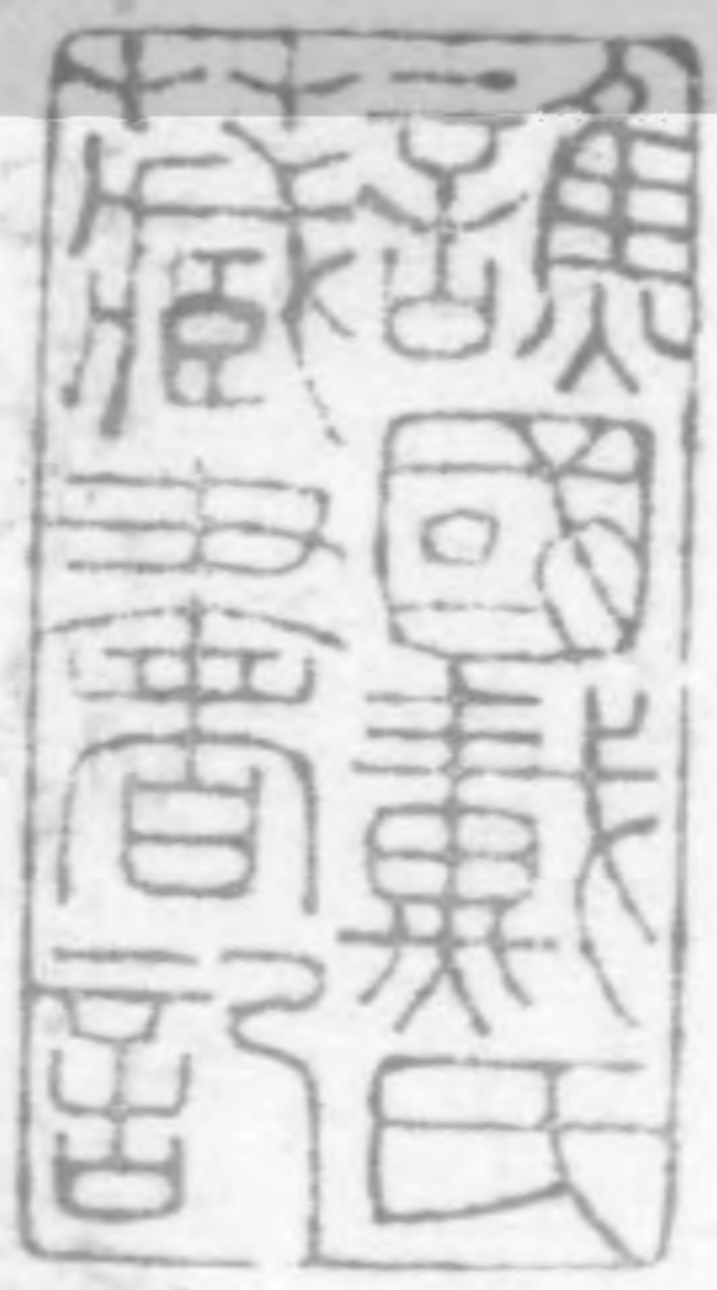 譙國戴氏
藏書記